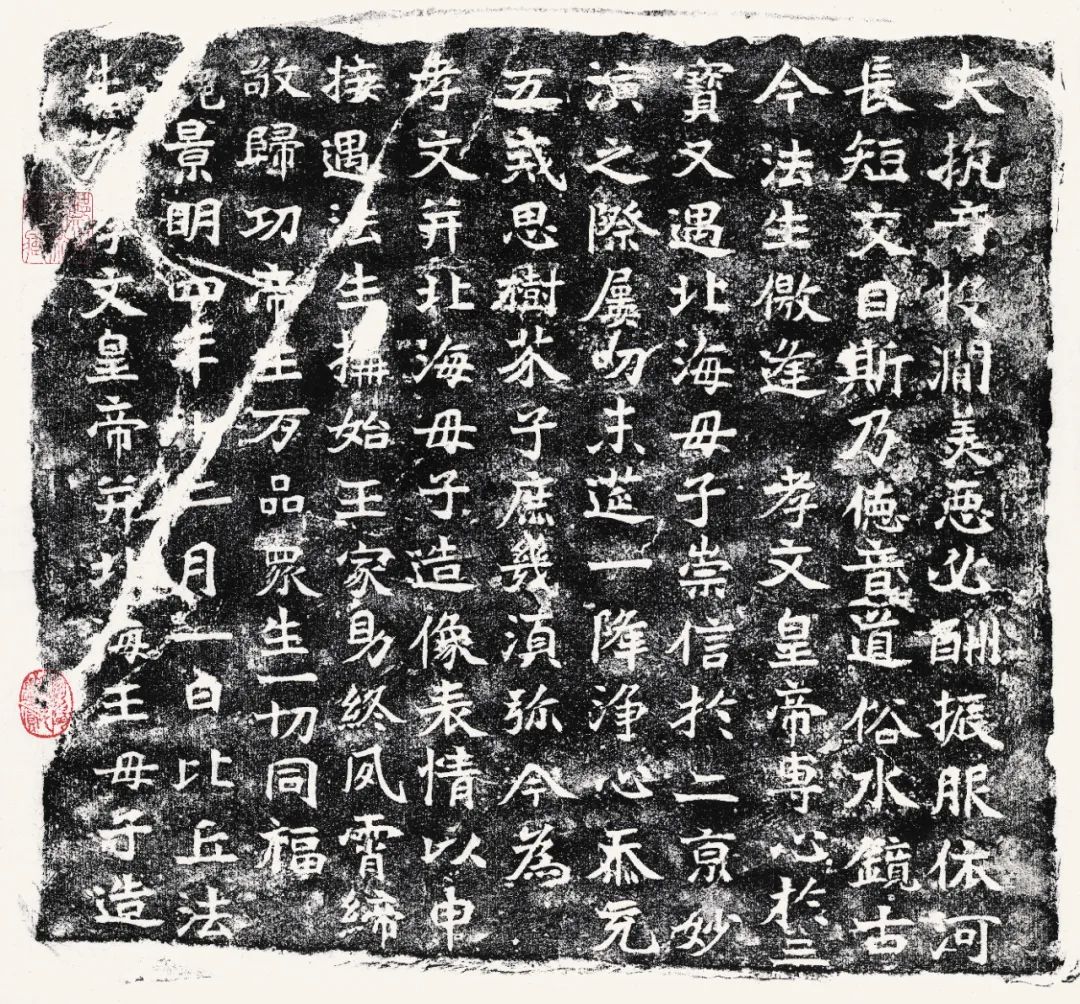 夫抗音投澗美惡必酬振服依河
長短交目斯乃德音道俗水鏡古
今法生儌逢 孝文皇帝專心於三
寶又遇北海母子崇信於二京妙
演之際屢叨末筵一降淨心忝充
五戒思樹芥子庶幾湏弥今為
孝文并北海母子造像表情以申
接遇法生搆始王家身終夙霄締
敬歸功帝王万品眾生一切同福
魏景明四年十二月一日比丘法
生為孝文皇帝并北海王母子造